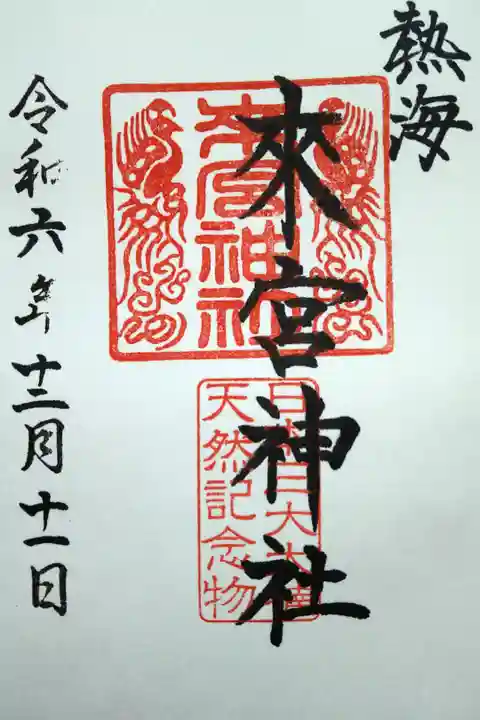 熱海
來宮神社
來宮神社
日本三大
天然記念物
令和六年十二月十一日